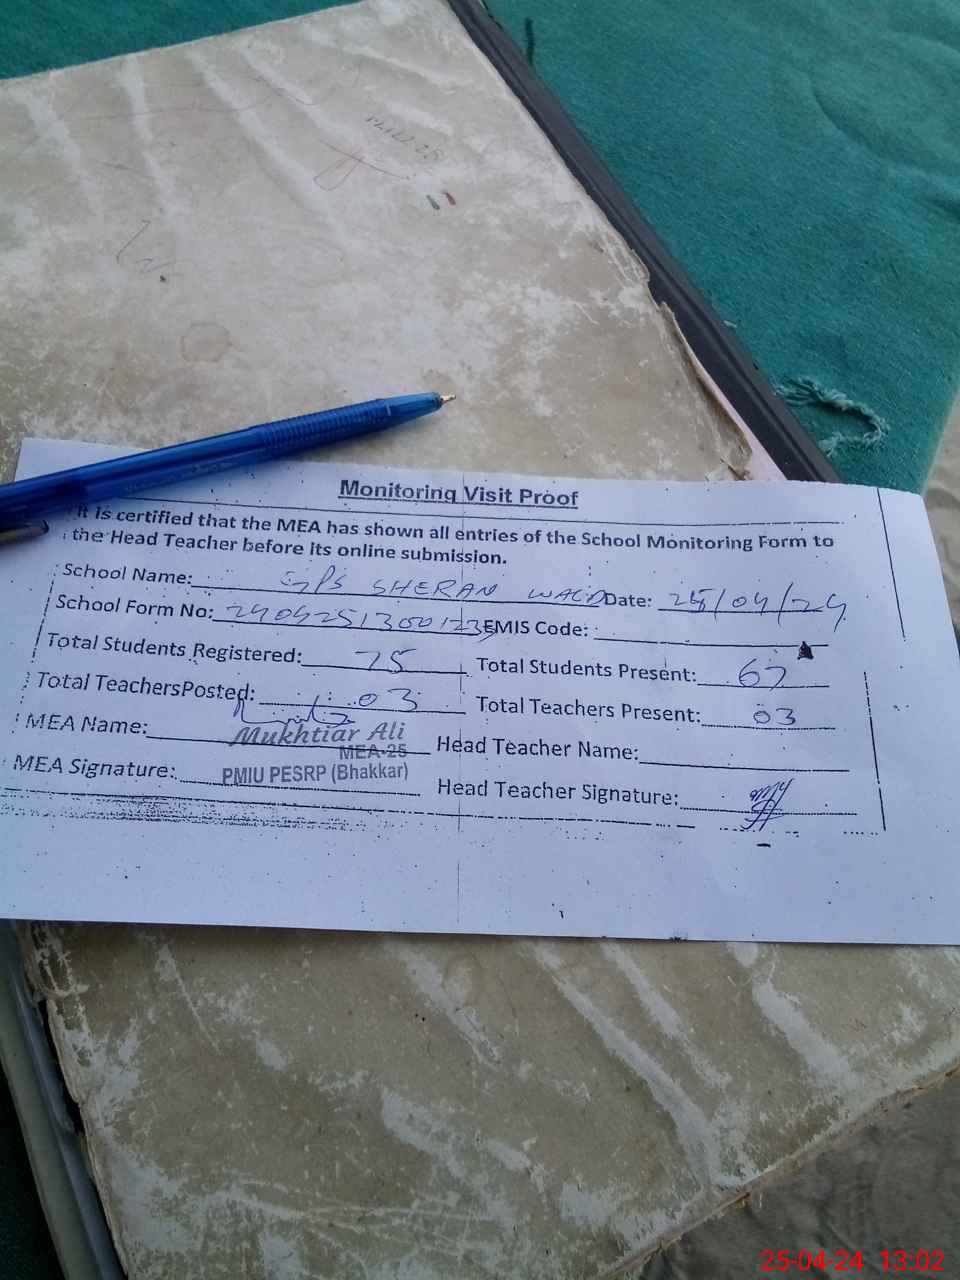 Monitoring Visit Proof
It is certified that the MEA has shown all entries of the School Monitoring Form to
the Head Teacher before its online submission.
School Name: GPS SHERAN WALA Date: 25/04/24
School Form No: EMIS Code:
Total Students Registered: 75 Total Students Present: 67
Total TeachersPosted: 03 Total Teachers Present: 03
MEA Name: Mukhtiar Ali Head Teacher Name:
MEA-25
MEA Signature: PMIU PESRP (Bhakkar) Head Teacher Signature:
25-04-24 13:02